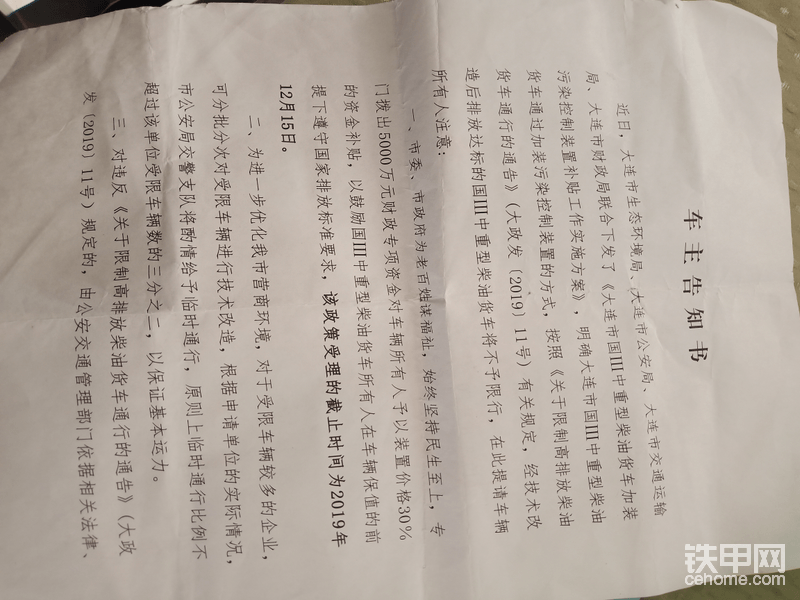 车主告知书
近日，大连市生态环境局、大连市公安局、大连市交通运输
局、大连市财政局联合下发了《大连市国III中重型柴油货车加装
污染控制装置补贴工作实施方案》，明确大连市国III中重型柴油
货车通过加装污染控制装置的方式，按照《关于限制高排放柴油
货车通行的通告》（大政发〔2019〕11号）有关规定，经技术改
造后排放达标的国III中重型柴油货车将不予限行，在此提请车辆
所有人注意：
一、市委、市政府为老百姓谋福祉，始终坚持民生至上，专
门拨出5000万元财政专项资金对车辆所有人予以装置价格30%
的资金补贴，以鼓励国III中重型柴油货车所有人在车辆保值的前
提下遵守国家排放标准要求，该政策受理的截止时间为2019年
12月15日。
二、为进一步优化我市营商环境，对于受限车辆较多的企业，
可分批分次对受限车辆进行技术改造，根据申请单位的实际情况，
市公安局交警支队将酌情给予临时通行，原则上临时通行比例不
超过该单位受限车辆数的三分之二，以保证基本运力。
三、对违反《关于限制高排放柴油货车通行的通告》（大政
发〔2019〕11号）规定的，由公安交通管理部门依据相关法律、
铁甲网
cehome.com